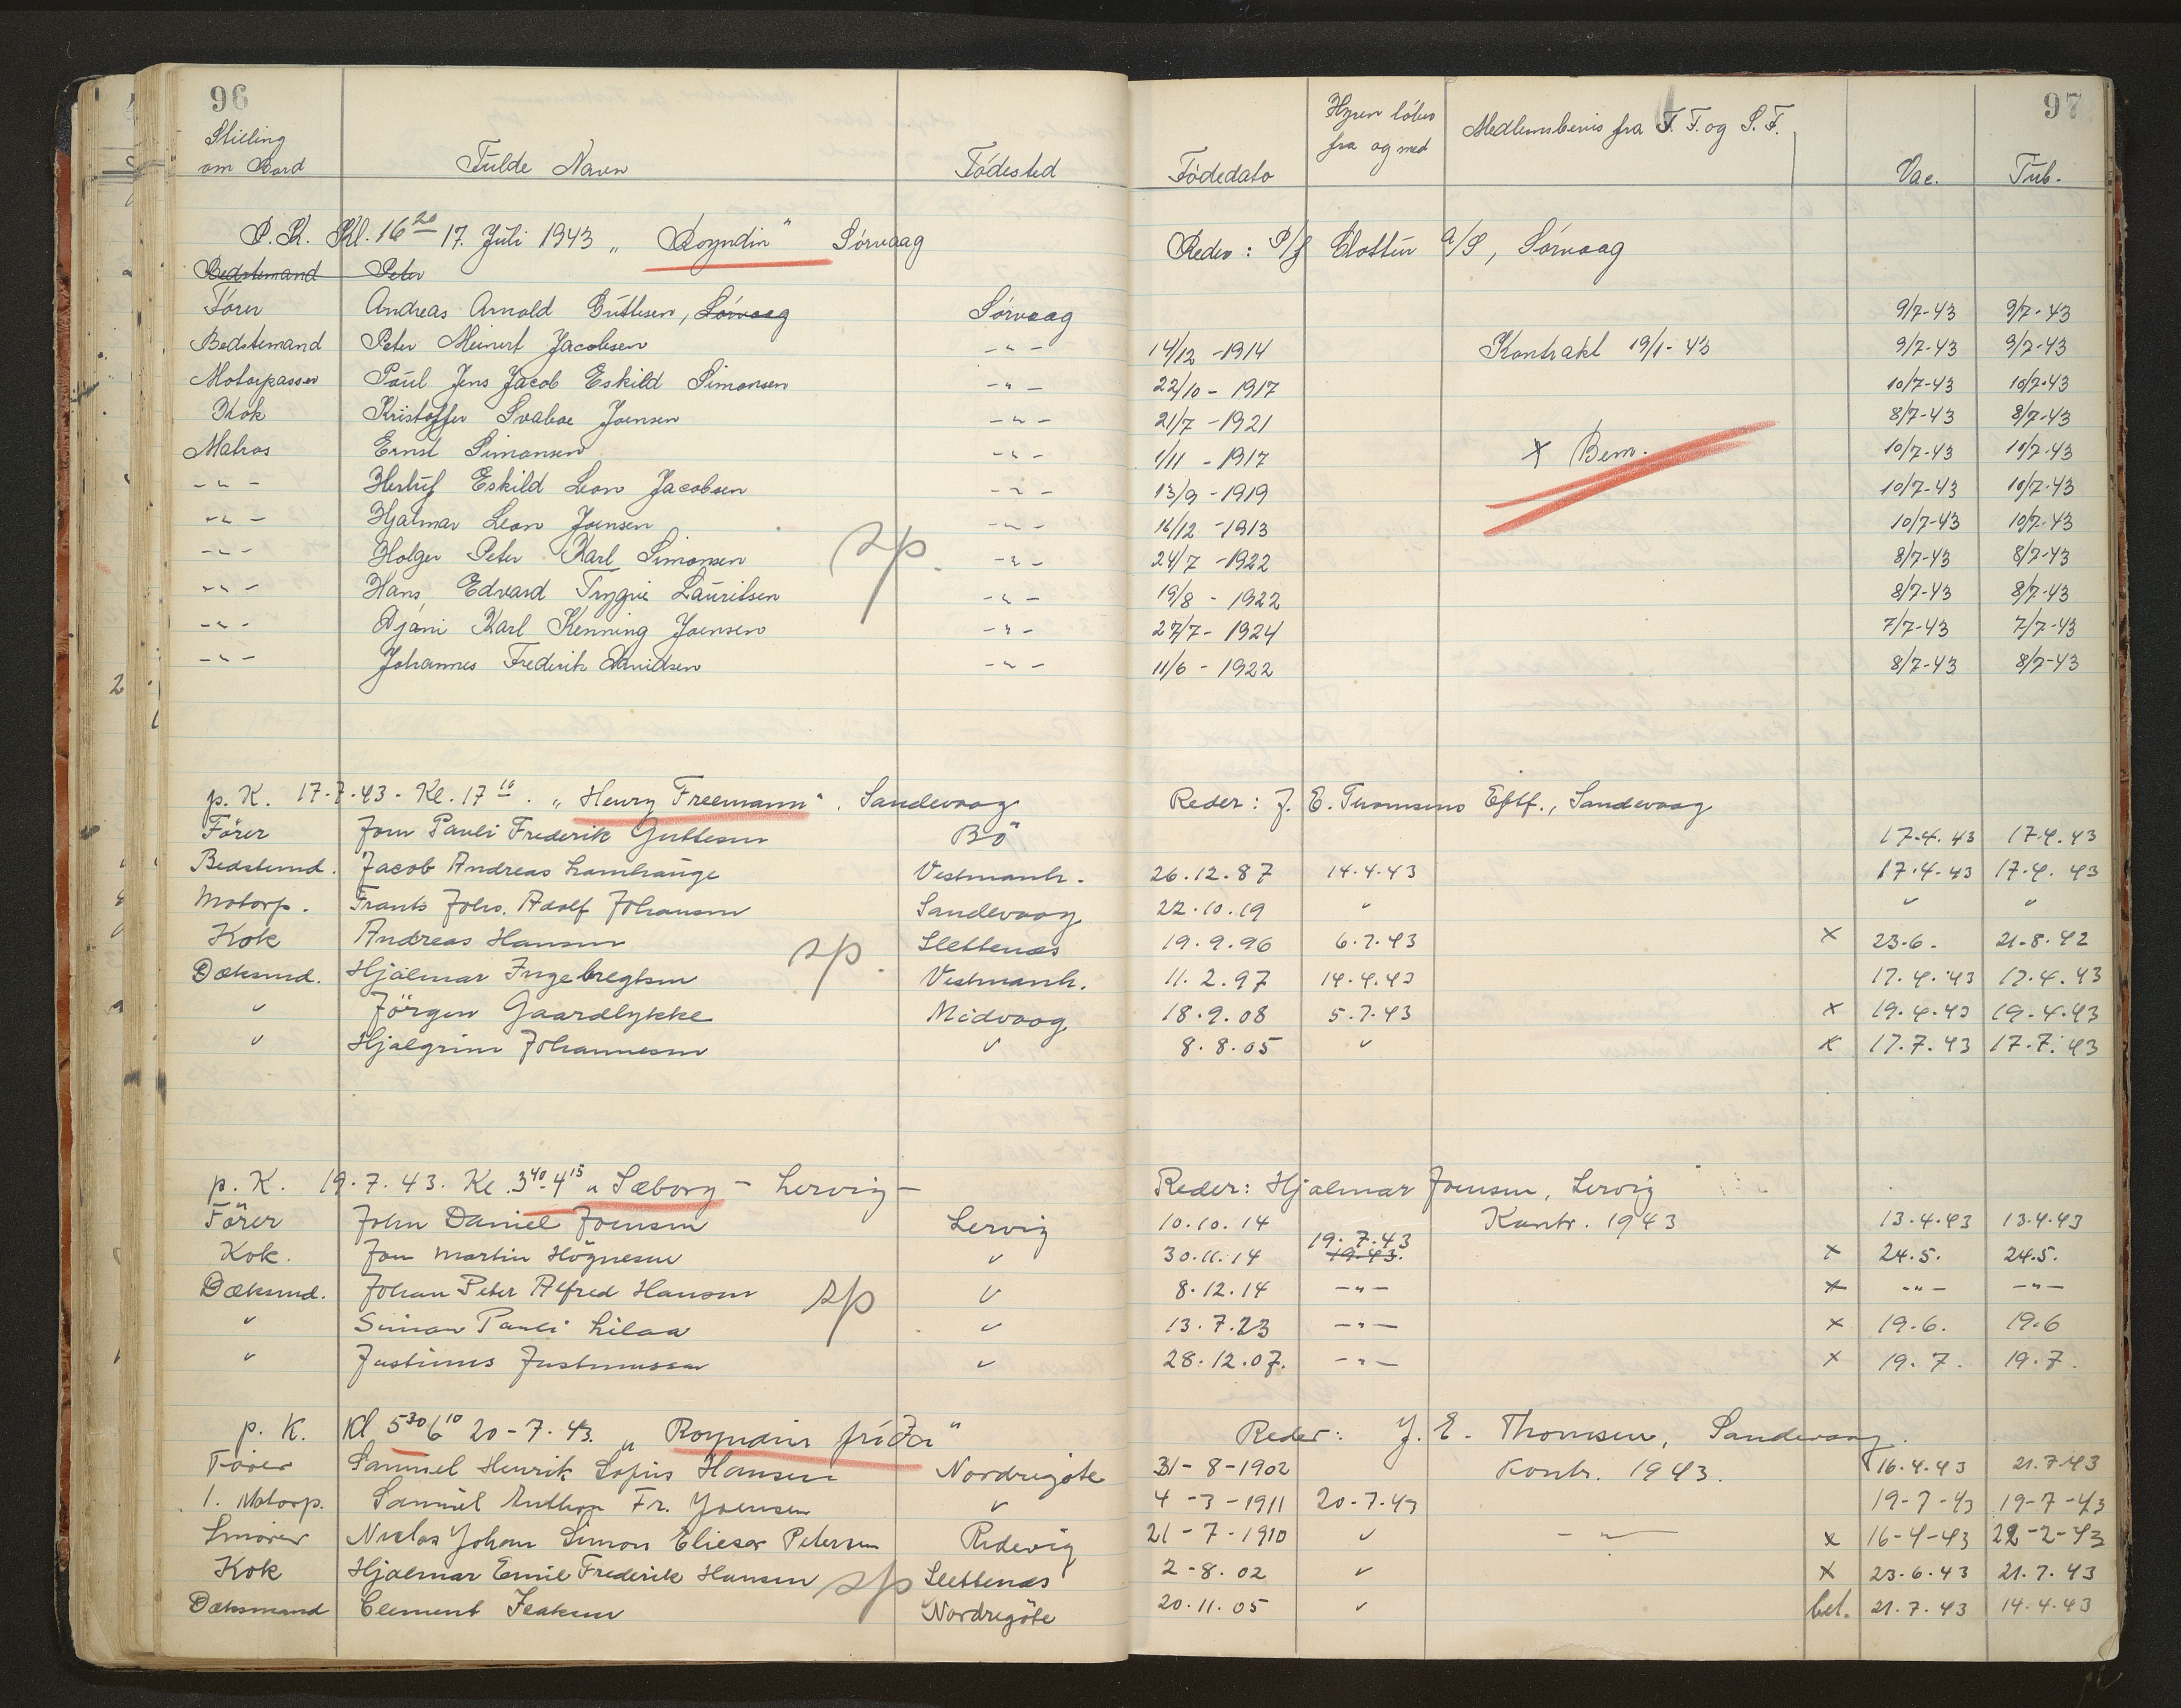 96
97
Stilling om Bord Fulde Navn Födested Födedato Hyren löber fra og med Medlemsbevis fra F. F. og S. F. Vac. Tub.
P. K. Kl. 16 20 17. Juli 1943 „Royndin" Sörvaag Reder: P/f A/S, Sörvaag
Bedstemand Peter
Förer Andreas Arnold Guttesen, Sörvaag Sörvaag 9/7-43 9/7-43
Bedstemand Peter Meinert Jacobsen -"- 14/12-1914 Kontrakt 19/1-43 9/7-43 9/7-43
Motorpasser Paul Jens Jacob Eskild Simonsen -"- 22/10-1917 10/7-43 10/7-43
Kok Kristoffer Svaboe Joensen -"- 21/7-1921 8/7-43 8/7-43
Matros Ernst Simonsen -"- 1/11-1917 x Bem. 10/7-43 10/7-43
-"- Herluf Eskild Leon Jacobsen -"- 13/9-1919 10/7-43 10/7-43
-"- Hjalmar Leon Joensen -"- 16/12-1913 10/7-43 10/7-43
-"- Holger Peter Karl Simonsen sp. -"- 24/7-1922 8/7-43 8/7-43
-"- Hans Edvard Trygvi Lauritsen -"- 19/8-1922 8/7-43 8/7-43
-"- Djoni Karl Henning Joensen -"- 27/7-1924 7/7-43 7/7-43
-"- Johannes Frederik Davidsen -"- 11/6-1922 8/7-43 8/7-43
p. K. 17-7-43- Kl. 17 10. „Henry Freemann". Sandevaag Reder: J. E. Thomsens Eftf., Sandevaag
Förer Jom Pauli Frederik Guttesen Bö 17.4.43 17.4.43
Bedstemd. Jacob Andreas Lamhauge Vestmanh. 26.12.87 14.4.43 17.4.43 17.4.43
Motorp. Frants Johs. Adolf Johansen Sandevaag 22.10.19 " " "
Kok Andreas Hansen sp. Slettenæs 19.9.96 6.7.43 x 23-6- 21-8-42
Dæksmd. Hjalmar Ingebregtsen Vestmanh. 11.2.97 14.4.43 17.4.43 17.4.43
" Jörgen Gaardlykke Midvaag 18.9.08 5.7.43 x 19.4.43 19.4.43
" Hjalgrim Johannesen " 8.8.05 " x 17.7.43 17.7.43
p. K. 19.7.43. Kl. 3 40-4 15 „Sæborg - Lervig - Reder: Hjalmar Joensen, Lervig
Förer John Daniel Joensen Lervig 10.10.14 Kontr. 1943 13.4.43 13.4.43
Kok. Jon Martin Högnesen " 30.11.14 19.7.43 19.43. x 24.5. 24.5.
Dæksmd. Johan Peter Alfred Hansen sp " 8.12.14 -"- x -"- -"-
" Simon Pauli Lilaa " 13.7.23 -"- x 19.6. 19.6
" Justinus Justinussen " 28.12.07. -"- x 19.7. 19.7.
p. K. Kl 5 30 6 10 20-7-43. „Royndin friða" Reder: J. E. Thomsen, Sandevaag.
Förer Samuel Henrik Sofus Hansen Nordregöte 31-8-1902 Kontr. 1943. 16.4.43 21.7.43
1. Motorp. Samuel Anthon Fr. Joensen " 4-3-1911 20-7-43 19-7-43 19-7-43
Smörer Niclas Johan Simon Elieser Petersen Ridevig 21-7-1910 " -"- x 16-4-43 22-2-43
Kok Hjalmar Emil Frederik Hansen sp Slettenæs 2-8.02 " x 23.6.43 21.7.43
Dæksmand Clement Isaksen Nordregöte 20.11.05 " bet. 21.7.43 14.4.43